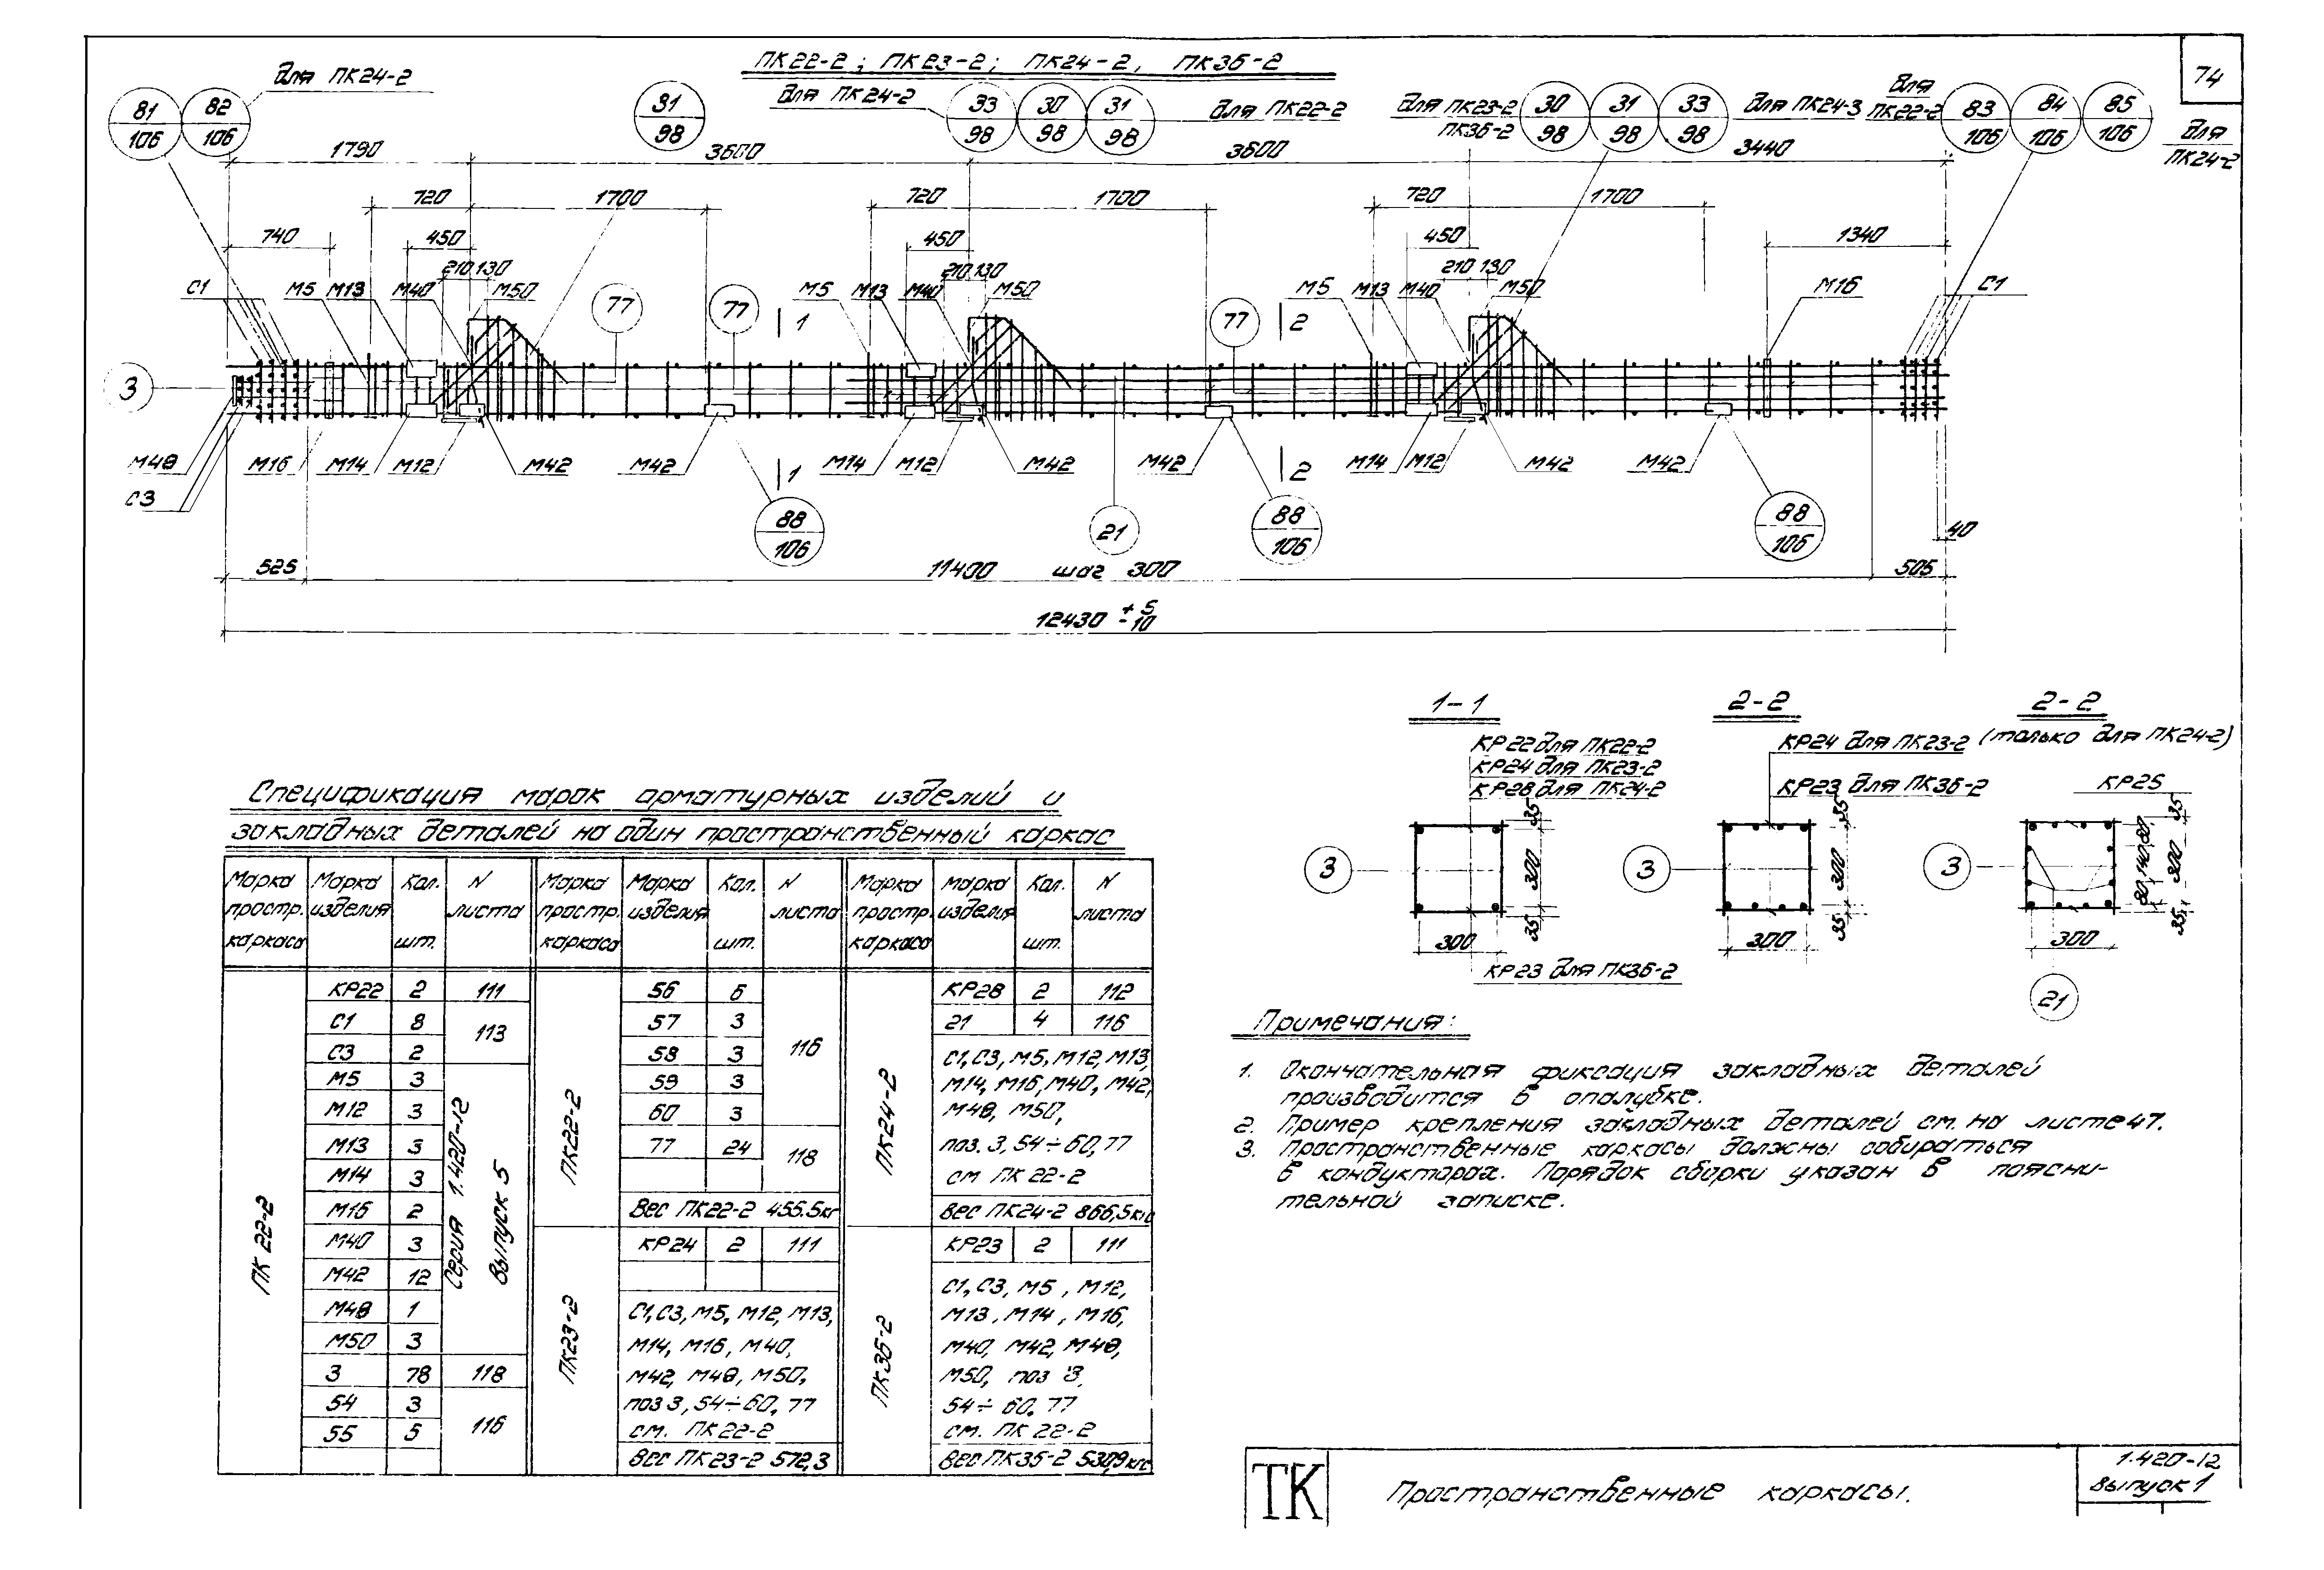 ПК22-2; ПК23-2; ПК24-2, ПК36-2
74
для ПК24-2
81 106
82 106
31 98
для ПК24-2
33 98
30 98
31 98
для ПК22-2
для ПК23-2
ПК36-2
30 98
31 98
33 98
для ПК24-3
для
ПК22-2
83 106
84 106
85 106
для
ПК24-2
1790 3600 3600 3440
720 1700 720 1700 720 1700
740 450 450 450 1340
210 130 210 130 210 130
С1 М5 М13 М40 М50 77 77 М5 М13 М40 М50 77 М5 М13 М40 М50 М16 С1
1 2
3
М48 М16 М14 М12 М42 М42 М14 М12 М42 М42 М14 М12 М42 М42
1 2
С3
88 106
21
88 106
88 106
40
525 11400 шаг 300 505
12430 +5 -10
1-1
КР22 для ПК22-2
КР24 для ПК23-2
КР28 для ПК24-2
3
35 300 35
300
КР23 для ПК36-2
2-2
КР24 для ПК23-2
КР23 для ПК36-2
3
35 300 35
300
2-2
(только для ПК24-2)
КР25
3
80 140 80
35 300 35
300
21
Спецификация марок арматурных изделий и
закладных деталей на один пространственный каркас
Марка простр. каркаса Марка изделия Кол. шт. N листа Марка простр. каркаса Марка изделия Кол. шт. N листа Марка простр. каркаса Марка изделия Кол. шт. N листа
ПК 22-2
КР22 2 111
С1 8 113
С3 2
М5 3
М12 3
М13 3
М14 3
М16 2
М40 3
М42 12
М48 1
М50 3
Серия 1.420-12
Выпуск 5
3 78 118
54 3 116
55 5
ПК22-2
56 6
57 3
58 3 116
59 3
60 3
77 24 118
Вес ПК22-2 455.5кг
ПК23-2
КР24 2 111
С1, С3, М5, М12, М13,
М14, М16, М40,
М42, М48, М50,
поз 3, 54÷60, 77
см. ПК22-2
Вес ПК23-2 572,3
ПК24-2
КР28 2 112
21 4 116
С1, С3, М5, М12, М13,
М14, М16, М40, М42,
М48, М50,
поз. 3, 54÷60, 77
см ПК 22-2
Вес ПК24-2 866,5кгс
ПК36-2
КР23 2 111
С1, С3, М5, М12,
М13, М14, М16,
М40, М42, М48,
М50, поз 3,
54÷60, 77
см. ПК 22-2
Вес ПК36-2 530,9 кгс
Примечания:
1. Окончательная фиксация закладных деталей
производится в опалубке.
2. Пример крепления закладных деталей см. на листе 47.
3. Пространственные каркасы должны собираться
в кондукторах. Порядок сборки указан в поясни-
тельной записке.
ТК
Пространственные каркасы.
1.420-12
выпуск 1